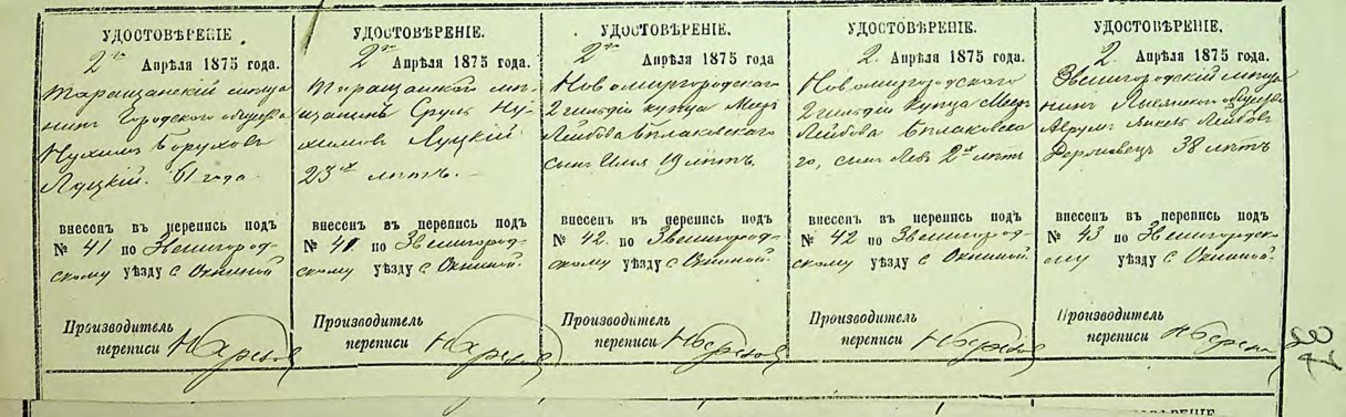 УДОСТОВѢРЕНІЕ.
2го Апрѣля 1875 года.
Таращанскій мѣща
нинъ Городского общества
Нухимъ Боруховъ
Луцкій. 61 года
внесенъ въ перепись подъ
№ 41 по Звенигород-
скому уѣзду с Окниной
Производитель
переписи
УДОСТОВѢРЕНІЕ.
2го Апрѣля 1875 года.
Таращанскій мѣ-
щанинъ Сруль Ну-
химовъ Луцкій
23х лѣтъ.
внесенъ въ перепись подъ
№ 41 по Звенигород-
скому уѣзду с Окниной.
Производитель
переписи
УДОСТОВѢРЕНІЕ.
2го Апрѣля 1875 года
Новомиргородскаго
2 гильдіи купца Меер
Лейбова Бѣлаковскаго
сынъ Илья 19 лѣтъ.
внесенъ въ перепись подъ
№ 42. по Звенигород-
скому уѣзду с Окниной.
Производитель
переписи
УДОСТОВѢРЕНІЕ.
2. Апрѣля 1875 года.
Новомиргородскаго
2 гильдіи купца Меер
Лейбова Бѣлаковска
го, сынъ Левъ 2х лѣтъ
внесенъ въ перепись подъ
№ 42 по Звенигород-
скому уѣзду с Окниной.
Производитель
переписи
УДОСТОВѢРЕНІЕ.
2. Апрѣля 1875 года.
Звенигородскій мѣща
нинъ Лысянскаго общества
Аврумъ Янкель Лейбовъ
38 лѣтъ
внесенъ въ перепись подъ
№ 43 по Звенигородско
му уѣзду с Окниной.
Производитель
переписи